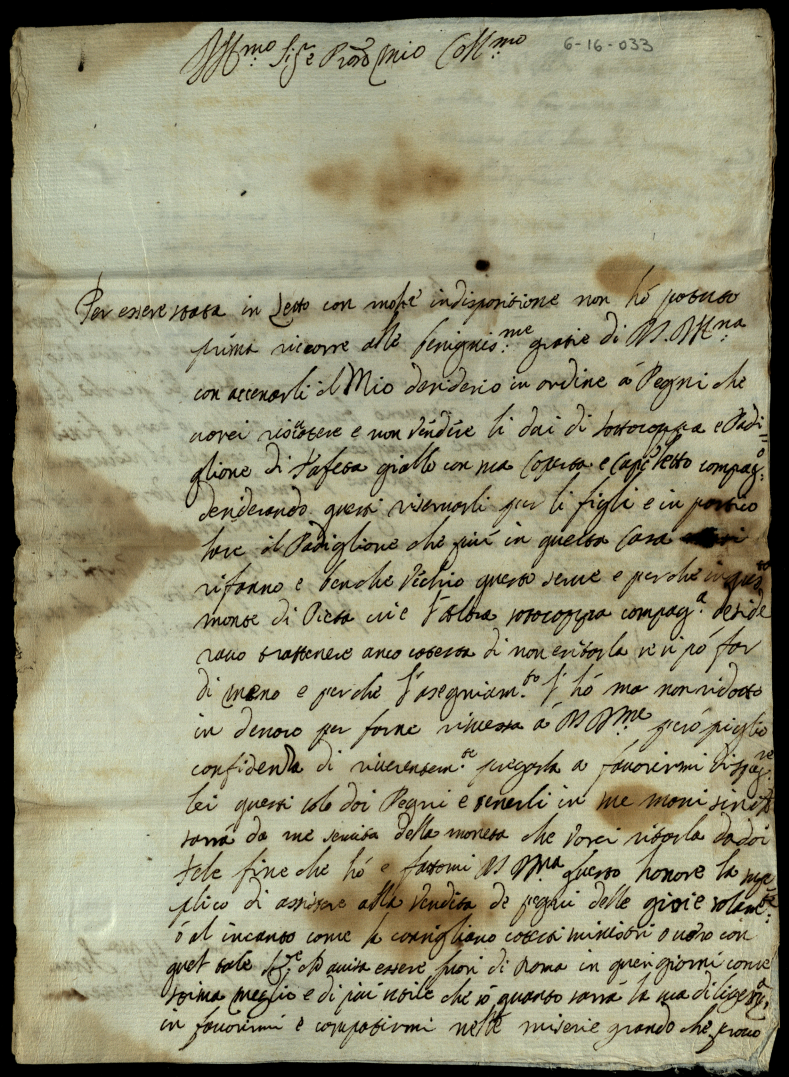 Ill.mo Sig.re Pro͂n Mio Coll.mo 6-16-033
Per essere stata in Letto con molte indispositione non hó potuto
prima ricorre alle benignis.me gratie di V.S. Ill.ma
con accenarli il Mio desiderio in ordine á Pegni che
vorei riscotere e non vendere li doi di sottocoppa e Padi=
glione di tafeta giallo con sua Coperta e Capoletto compag.o
desiderando questi riservarli per li figli e in partico
lare il Padiglione che piú in questa Casa
rifanno e benche Vechio questo serve e perche in questo
monte di Pieta vi e l'altra sotocoppa compag.a deside
ravo trattenere anco cotesta di non esitarla se si pó far
di meno e perche l'asegniam.to l'hó ma non ridotto
in denaro per farne rimessa á V.S. Ill.ma peró piglio
confidenza di riverentem.te pregarla a favorirmi
lei questi solo doi Pegni e tenerli in sue mani sin
sará da me servita della moneta che vorei ritorla da doi
Tele fine che hó e fattomi V.S. Ill.ma questo honore la sup
plico di assistere alla Vendita de pegni delle gioie solam.te
ó al incanto come la consigliano cotesti ministri o vero con
quel tale Sig.re che avisa essere fuori di Roma in quei giorni come
stima meglio e di piú utile che só quanto sará la sua diligenza
in favorirmi e compatirmi nelle miserie grande che provo